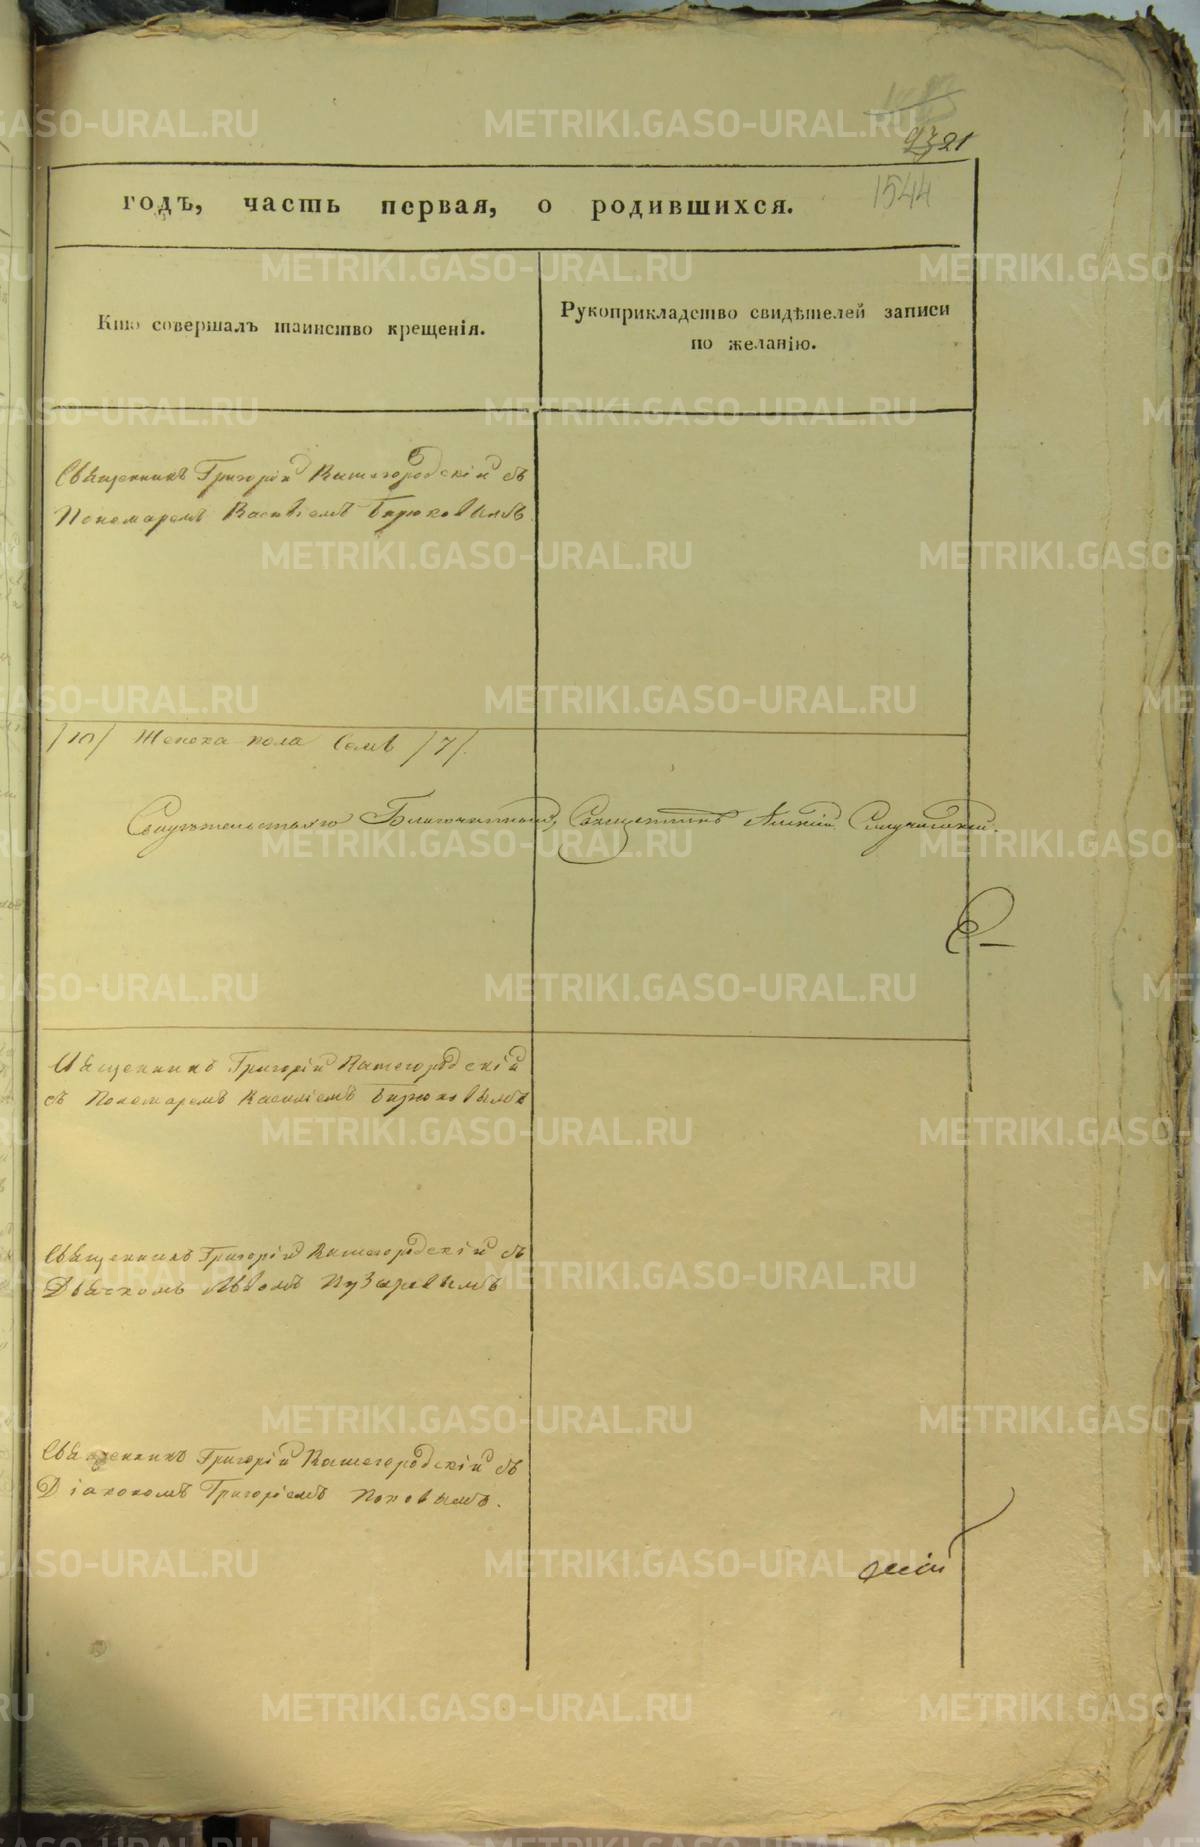 21
1544
годъ, часть первая, о родившихся.
Кто совершалъ таинство крещенія.
Рукоприкладство свидѣтелей записи
по желанію.
Священникъ Григорій Кашегородскій съ
Пономаремъ Василіемъ Бирюковымъ
/10/ Женска пола Семь /7/.
Благочинный, Священникъ
Священникъ Григорій Кашегородскій
съ Пономаремъ Василіемъ Бирюковымъ
Священникъ Григорій Кашегородскій съ
Дьячкомъ Львомъ Пузыревымъ
Священникъ Григорій Кашегородскій съ
Діакономъ Григоріемъ Поповымъ.
METRIKI.GASO-URAL.RU